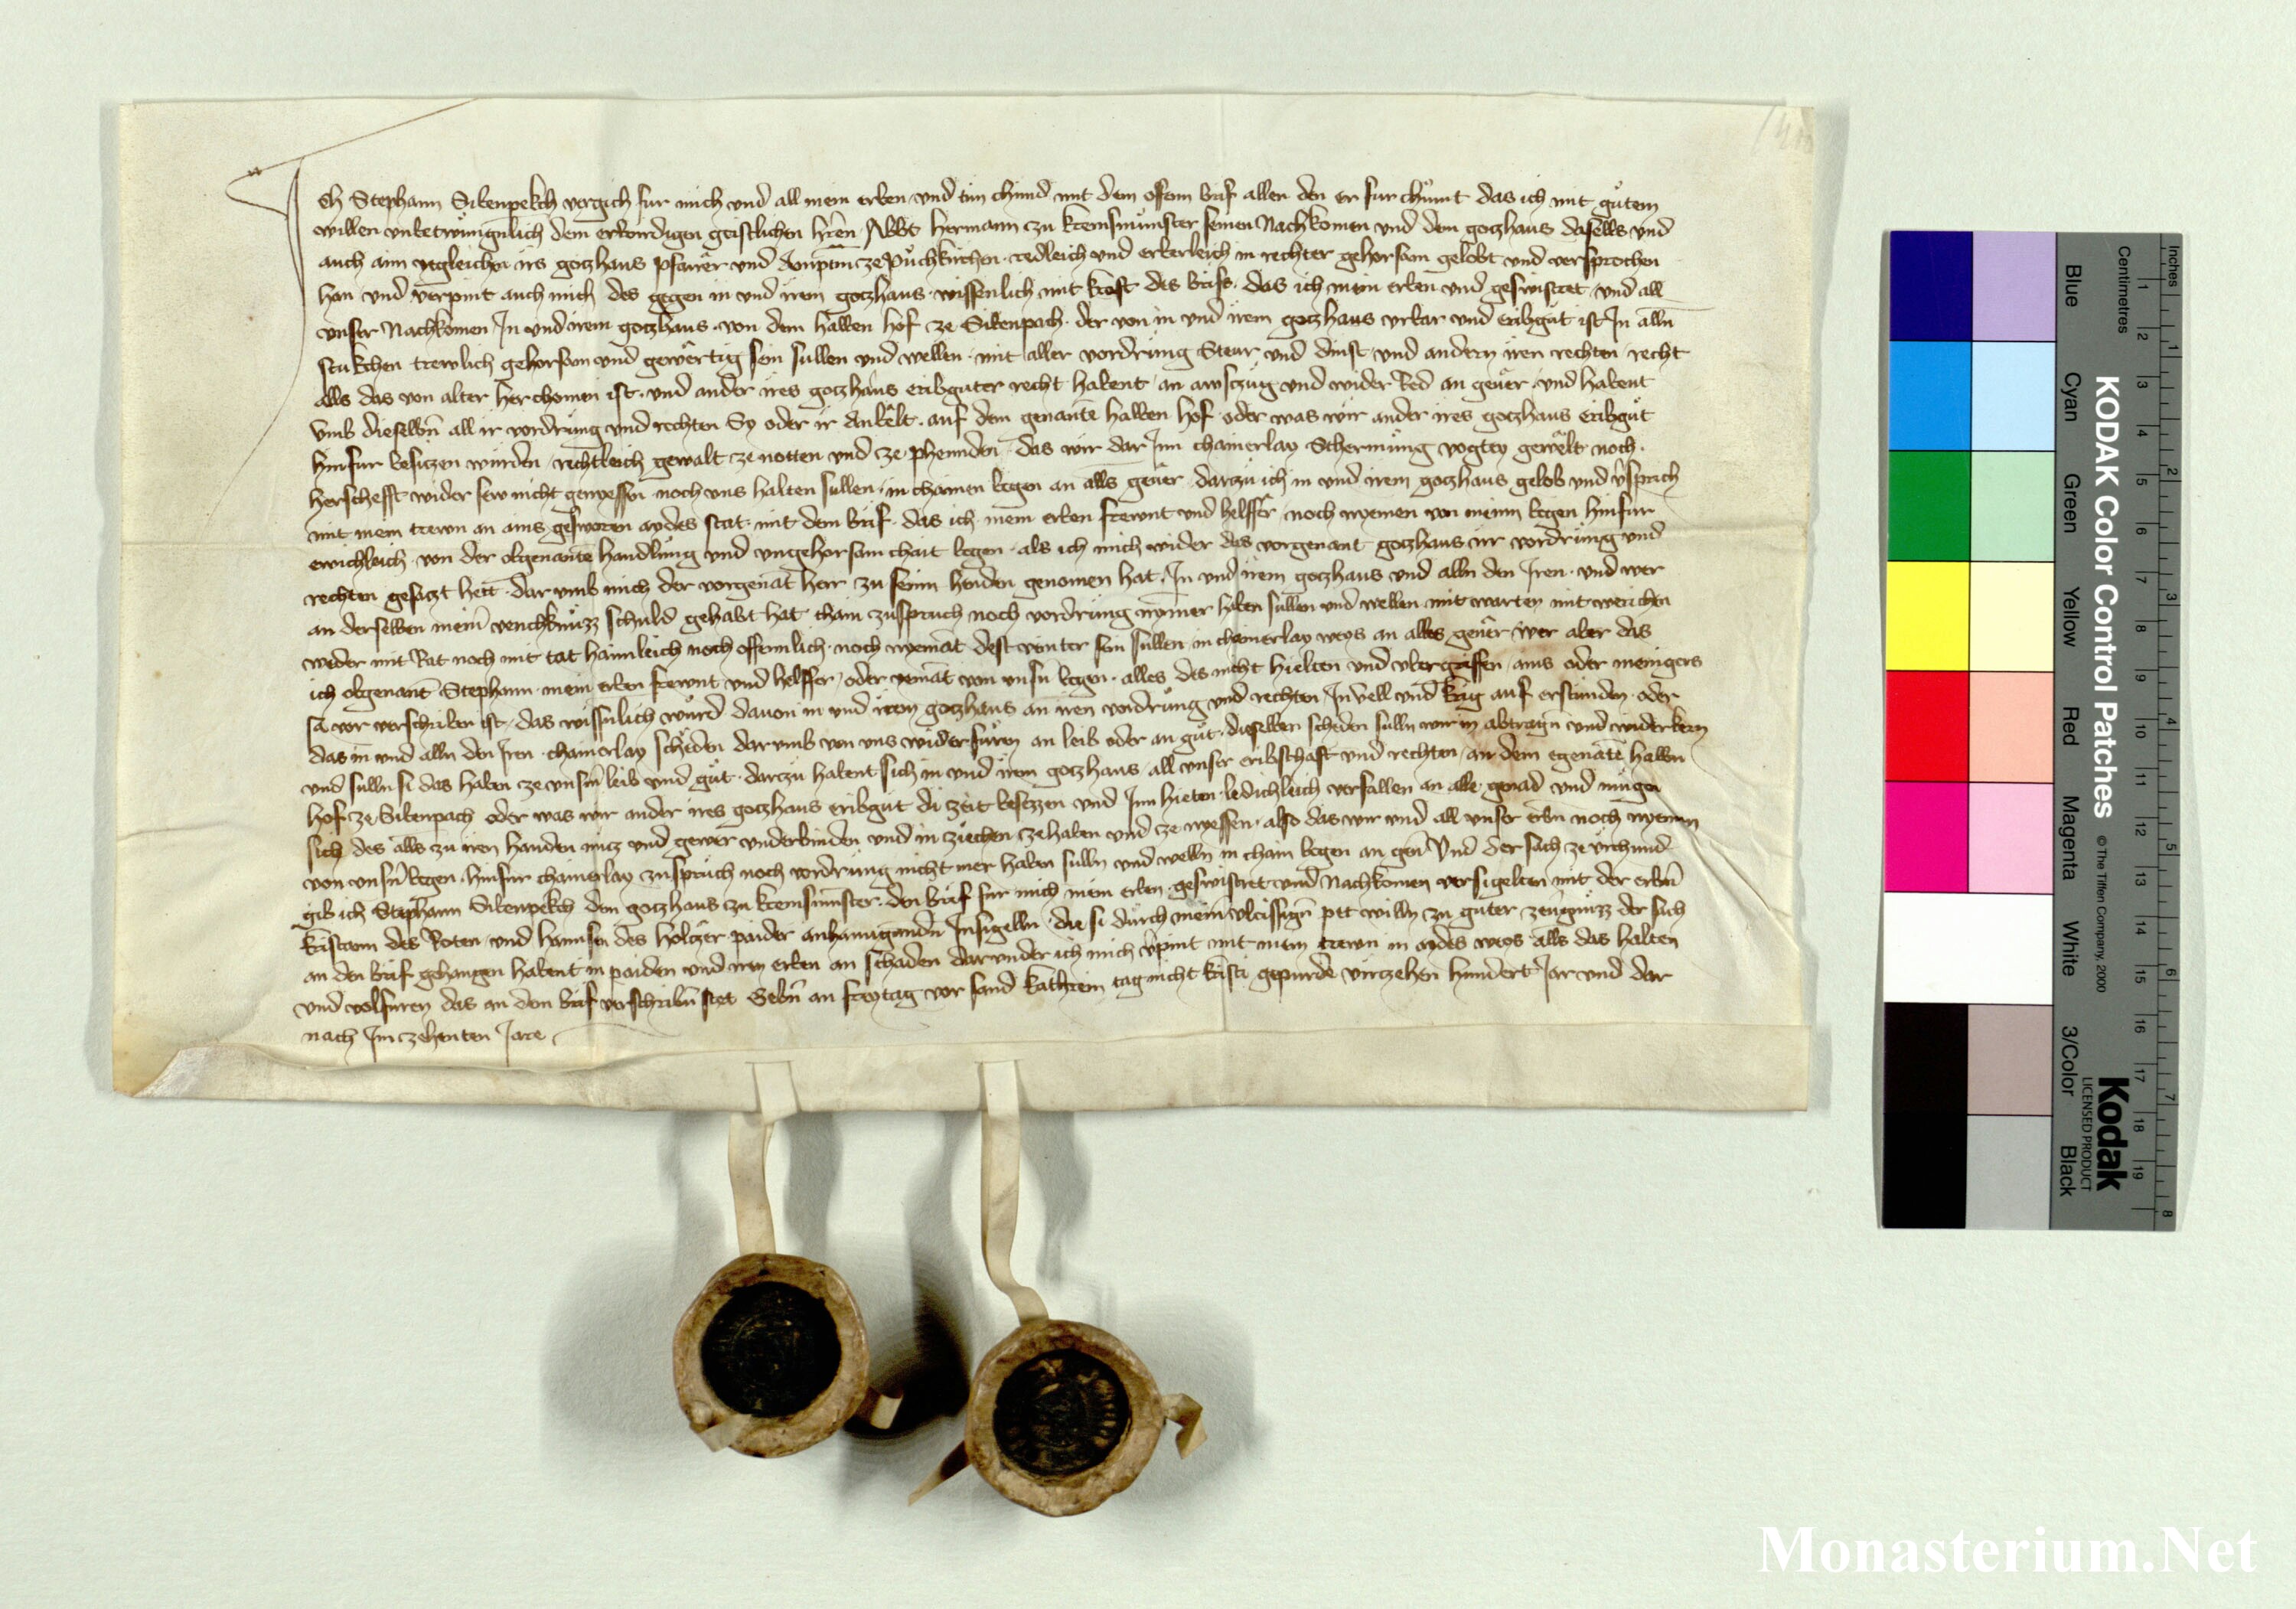 Ich Stephann Sibenpekch vergich fur mich und all mein erben und tun chund mit dem offem brief allen den er fur chumt das ich mit gutem
willen unbetwungenlich dem erbirdigen geistlichen hren Abbt Hermann zu kremsmunster seinen Nachkomen und dem gotzhaus daselbs und
auch aim yegleichen irs gotzhaus pfarrer und ze Puchkirchen redleich und erberleich in rechter gehorsam gelobt und versprochen
han und verpint auch mich des gegen in und irem gotzhaus wissenlich mit kraft des briefs das ich mein erben und geswistret und all
unser Nachkomen In und irem gotzhaus von dem halben hof ze Sibenpach der von in und irem gotzhaus urbar und eribgut ist In alln
stukchen trewlich gehorsam und gewertig sein sullen und wellen mit aller vordrung Steur und dinst und andern iren rechten recht
alls das von alter her chomen ist und ander ires gotzhaus eribguter recht habent an awsczug und wider Red an gever und habent
Umb dieselbn all ir vordrung und rechten Sy oder ir Anbelt auf dem genante halben hof oder was wir ander ires gotzhaus Eribgut
hinfur besitzen wurden rechtleich gewalt ze notten und ze phennden das wir dar Inn chainerlay Schermung vogtey gewelt noch
herschefft wider sew nicht geniessen noch uns halten sullen in chainen wegen an alls gever darzu ich in und irem gotzhaus gelob und vsprich
mit mein trewn an ains gesworen aydes stat mit dem brief das ich mein erben frewnt und helffer noch nyemen von meinn wegen hinfur
ewichleich von der obgenante handlung und ungehorsamchait wegen als ich mich wider das vorgenant gotzhaus irr vordrung und
rechten gesatzt hett dar umb mich der vorgenat herr zu seinn henden genomen hat In und irem gotzhaus und alln den Iren und wer
an derselben meinr venchknuzz schuld gehabt hat chain zuspruch noch vordrung nymer haben sullen und wellen mit warten mit werichen
weder mit Rat noch mit tat haimleich noch offennlich noch nyemat dest veinter sein sullen in chainerlay weys an alles gever wer aber das
ich obgenant Stephann mein erben frewnt und helffer oder yemat von unsn wegen alles des nicht hielten und ubergriffen ains oder menigers
sa vor verschriben ist das wissnlich wurd davon in und irem gotzhaus an iren vordrung und rechten Invell und krieg auf erstunden oder
das in und alln den Iren chainerlay scheden darumb von uns widerfuren an leib oder an gut dieselben scheden sulln wir in abtragn und widerkern
und sulln si das haben ze unsm leib und gut darzu habent sich in und irem gotzhaus all unser eribschaft und rechten an dem egenate halbn
hof ze Sibenpach oder was wir ander ires gotzhaus eribgut di zeit besitzen und Inn hieten ledichleich verfallen an alle genad und mugen
sich des alls zu iren handen nutz und gewer underbinden und in ziechen ze haben und ze nyessen also das wir und all unser erbn noch nyemen
von unsn wegen hinfur chainerlay zuspruch noch vordrung nicht mer haben sulln und welln in chain wegen an gever Und der sach ze urchund
gib ich Stephann Sibenpekch dem gotzhaus zu kremsmunster den brief fur mich mein erben geswistret und Nachkomen versigelten mit der erbn
kristann des Roten und hannsen des holtzer paider anhanngunden Insigelln die si durch meinr vleissign pett willn zu guter zeugnuzz der sach
an den brief gehangen habent in paiden und iren erben an schaden darunder ich mich vpint mit mein trewn in aydes weys alls das halten
und volfuren das an dem brief verschribn stet Gebn an freytag vor sand kathrein tag nach kristi gepurde virtzehen hundert Jar und dar
nach Im zehenten Jare
Inches
Centimetres
Blue Cyan Green Yellow Red Magenta White 3/Color Black
KODAK Color Control Patches © The Tiffen Company, 2000
Kodak
LICENSED PRODUCT
1 2 3 4 5 6 7 8 9 10 11 12 13 14 15 16 17 18 19
1 2 3 4 5 6 7 8
Monasterium.Net